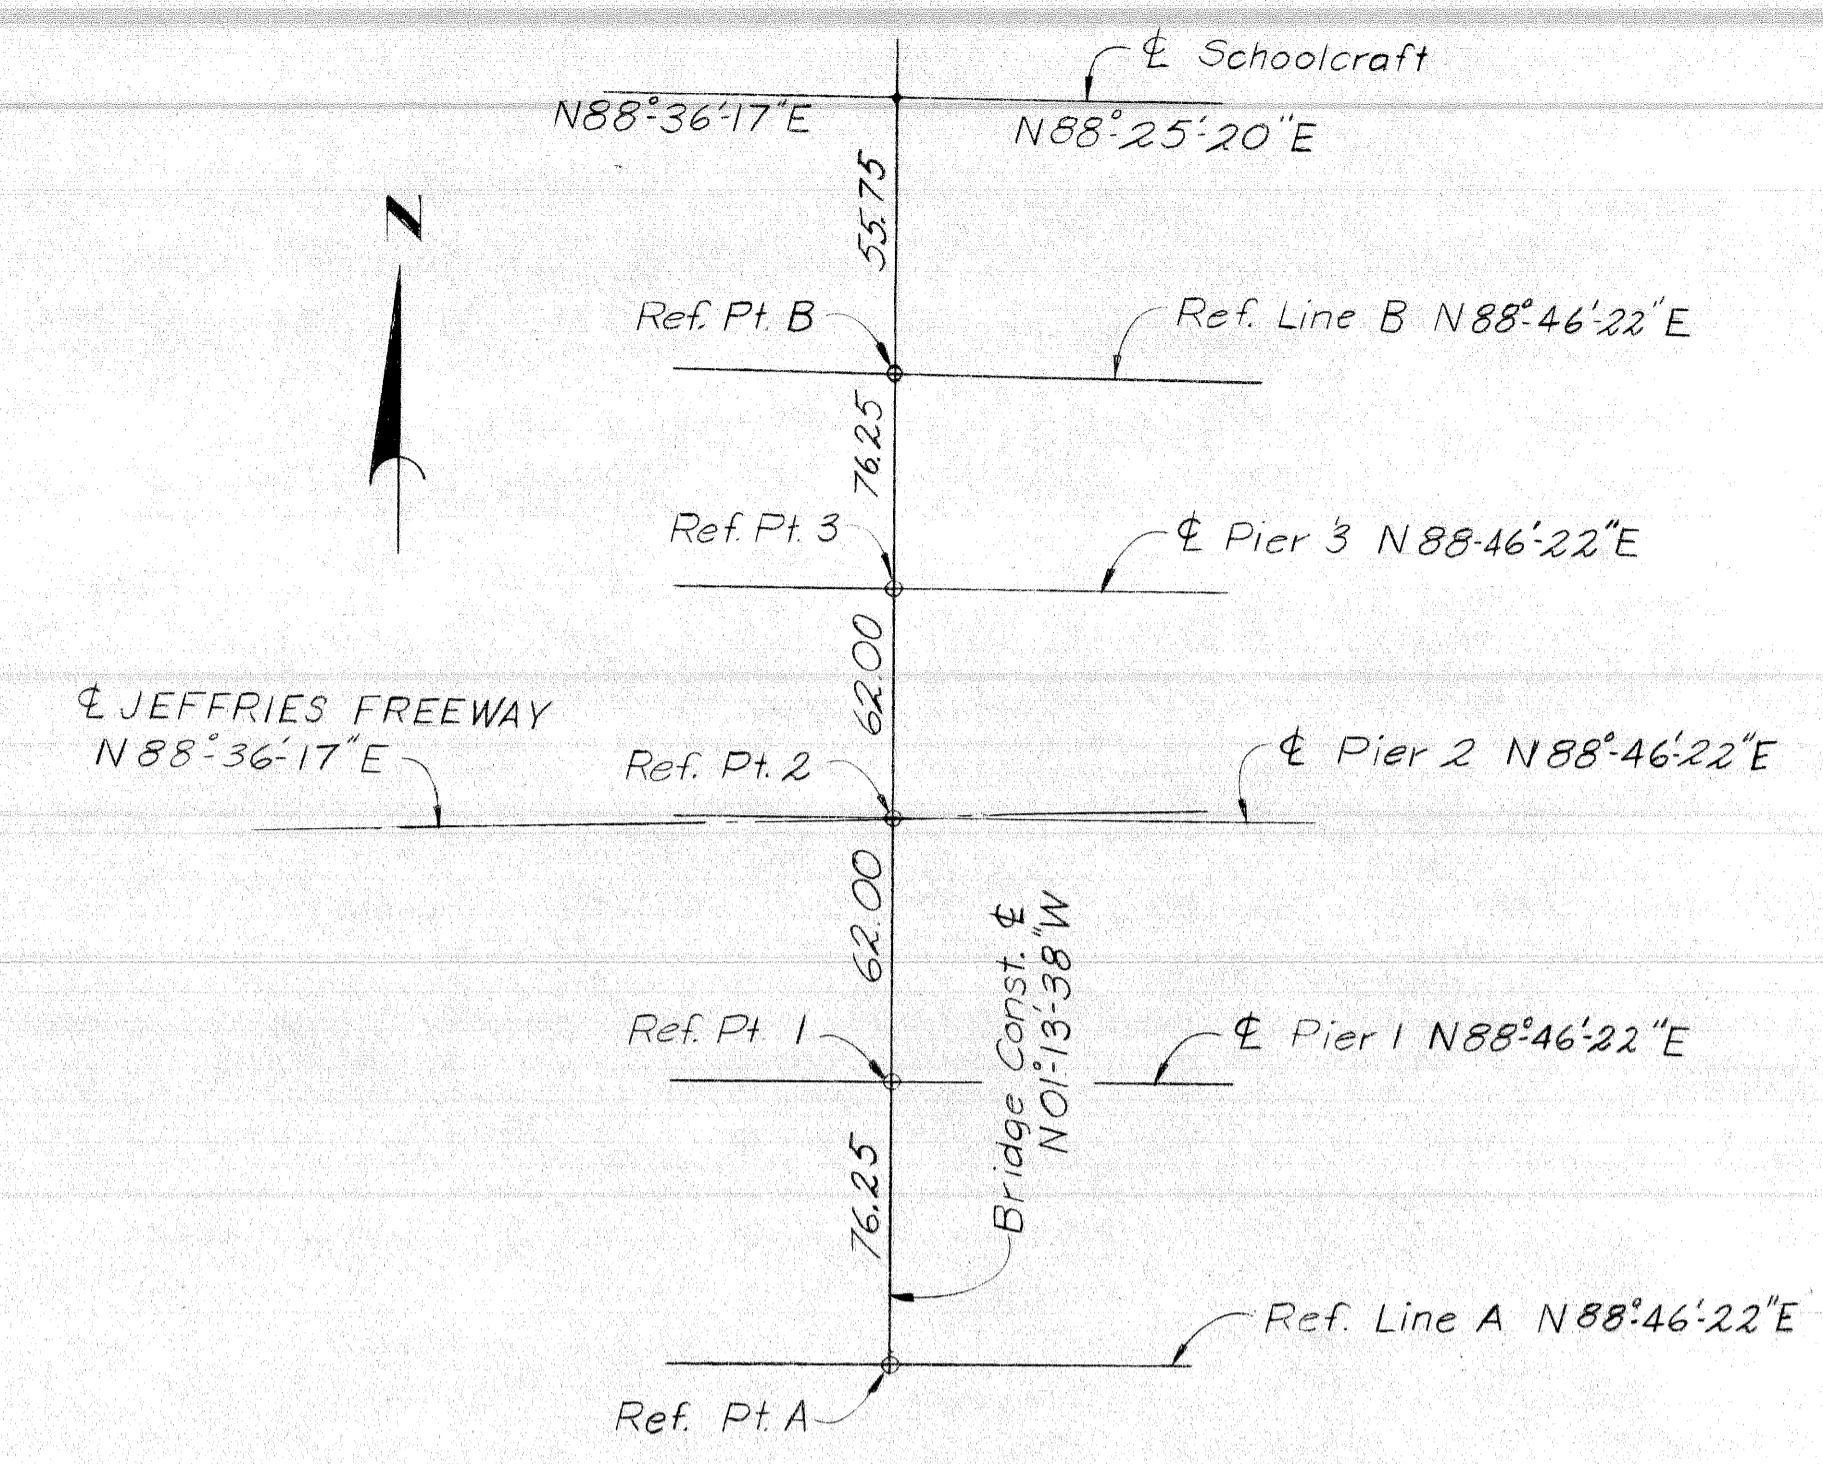 ℄ Schoolcraft
N88°-36'-17"E
N88°-25'-20"E
N
55.75
Ref. Pt. B
Ref. Line B N88°-46'-22"E
76.25
Ref. Pt. 3
℄ Pier 3 N88-46'-22"E
62.00
℄ JEFFRIES FREEWAY
N88°-36'-17"E
Ref. Pt. 2
℄ Pier 2 N88°-46'-22"E
62.00
Bridge Const. ℄
N01°-13'-38"W
Ref. Pt. 1
℄ Pier 1 N88°-46'-22"E
76.25
Ref. Line A N88°-46'-22"E
Ref. Pt. A